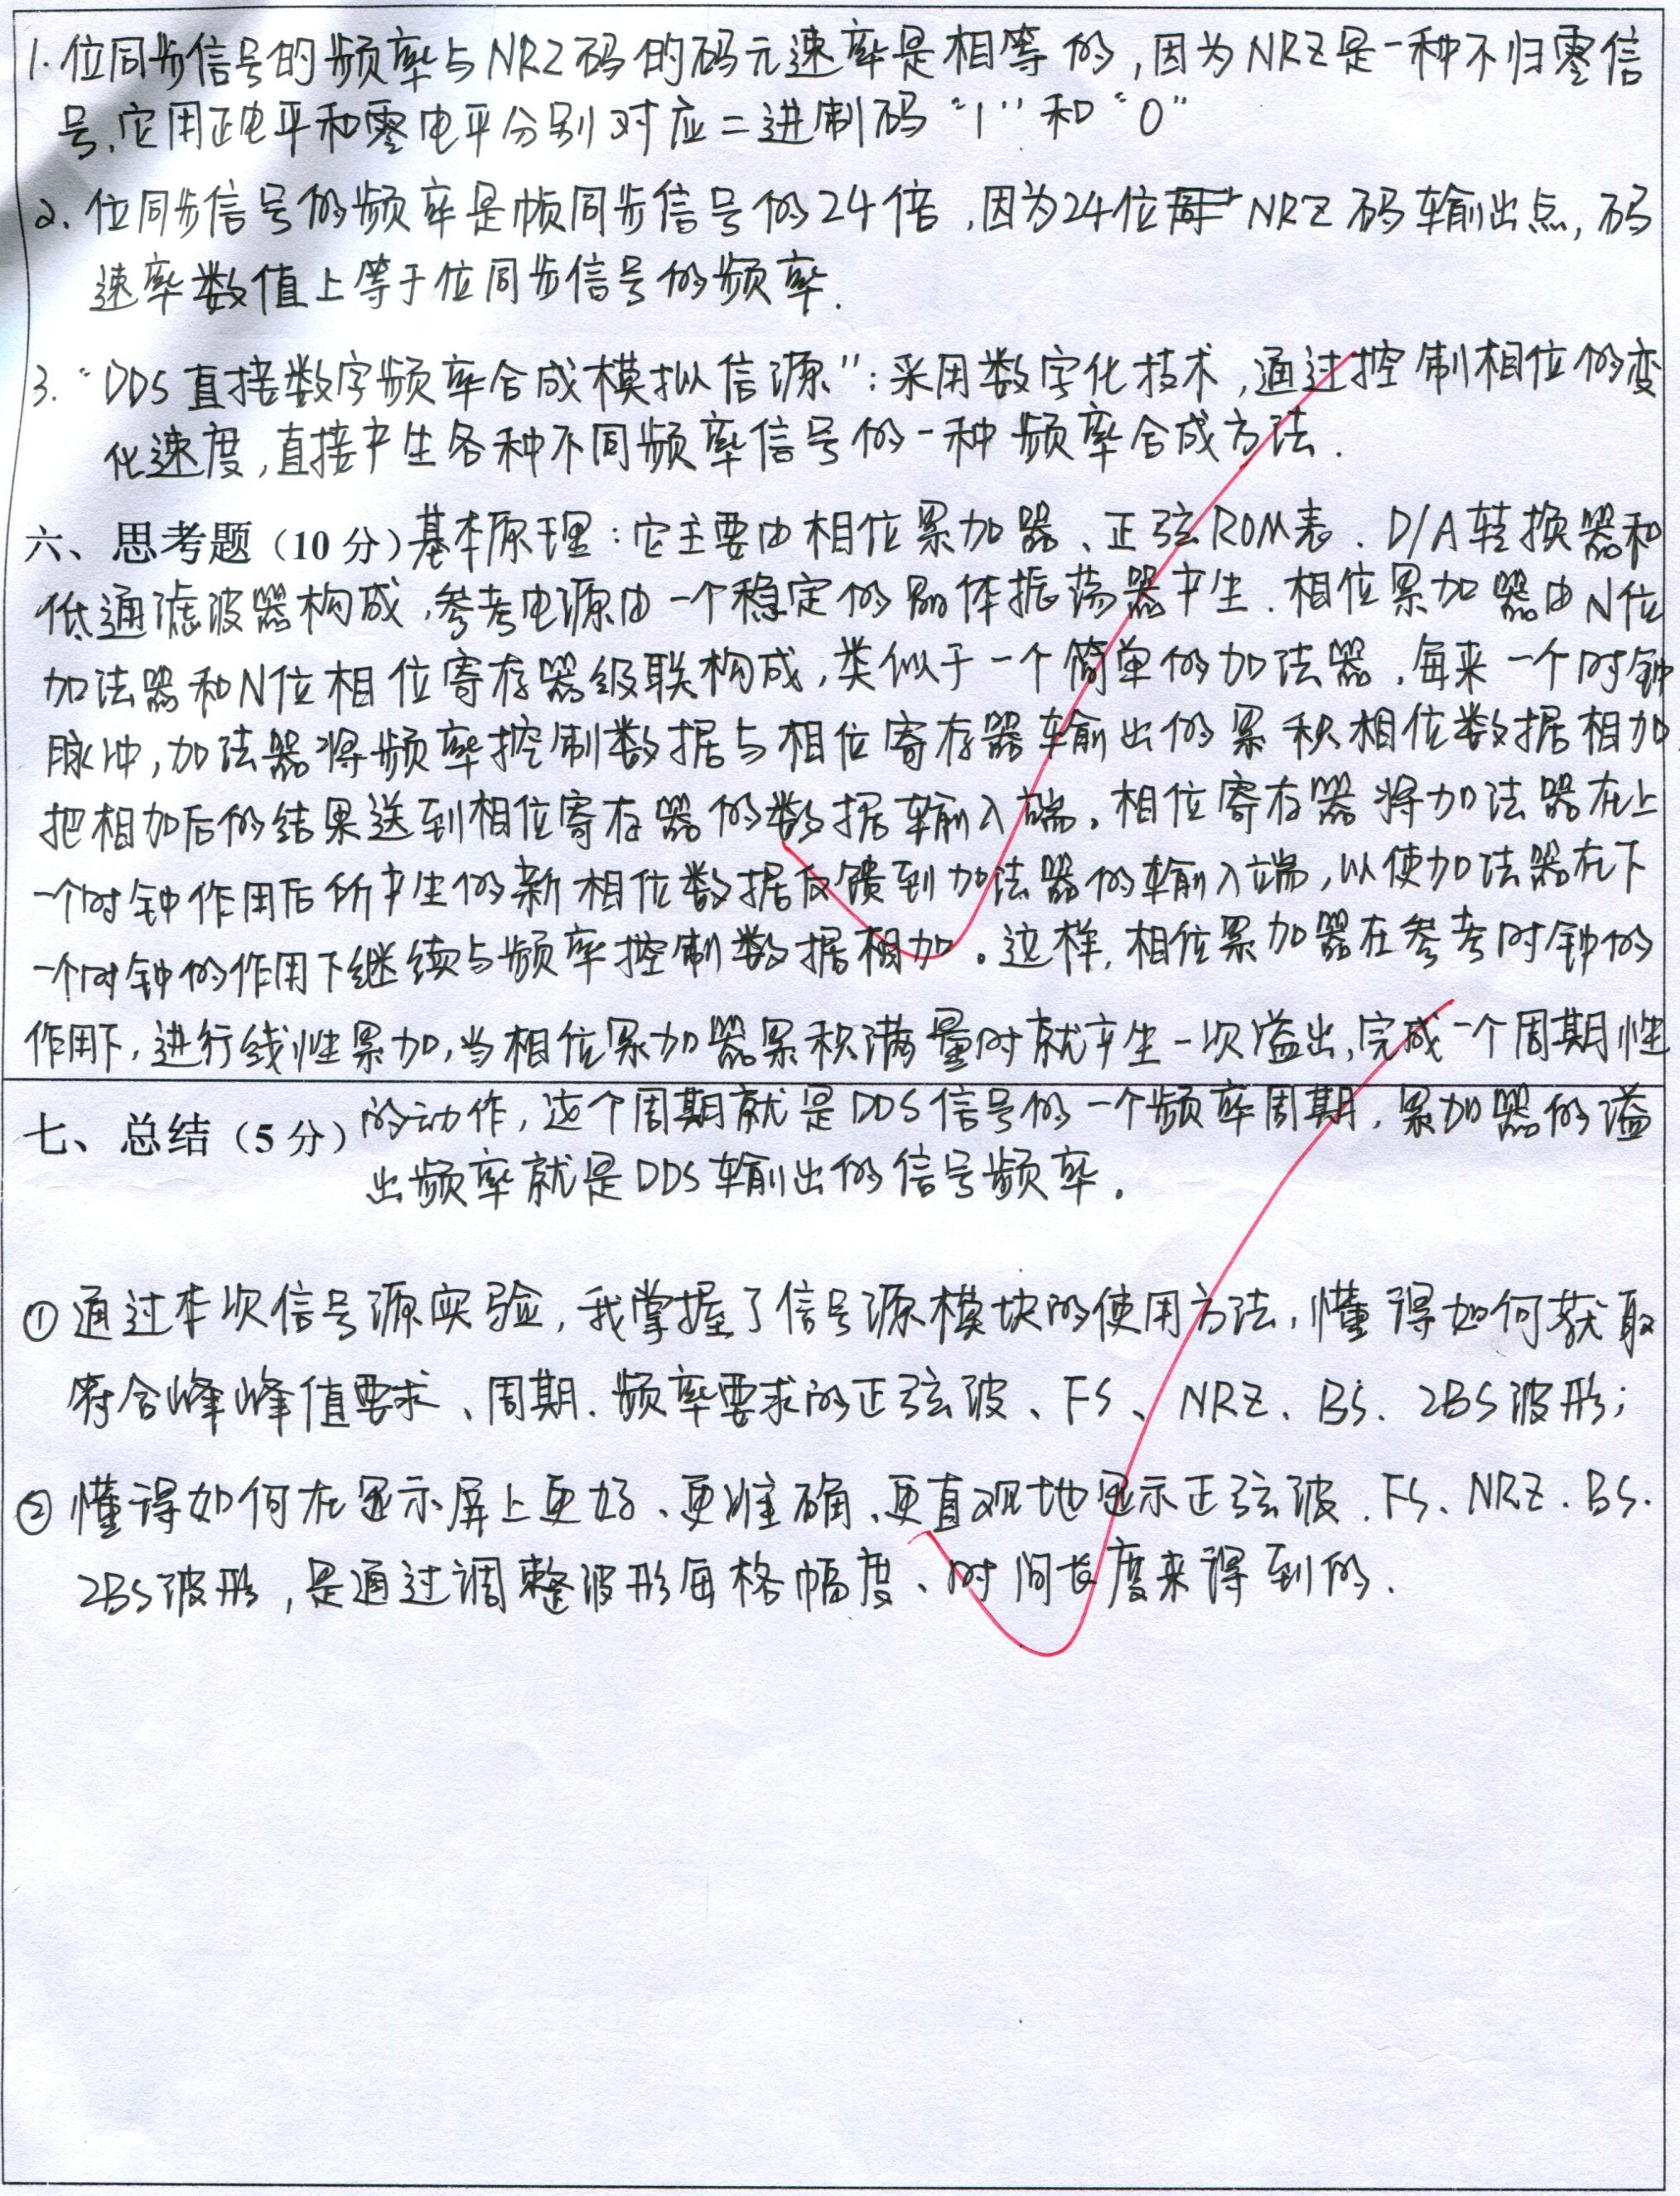 1. 位同步信号的频率与NRZ码的码元速率是相等的,因为NRZ是一种不归零信
号,它用正电平和零电平分别对应二进制码“1”和“0”
2. 位同步信号的频率是帧同步信号的24倍,因为24位 NRZ码输出点,码
速率数值上等于位同步信号的频率.
3. “DDS直接数字频率合成模拟信源”:采用数字化技术,通过控制相位的变
化速度,直接产生各种不同频率信号的一种频率合成方法.
六、思考题(10分)基本原理:它主要由相位累加器、正弦ROM表.D/A转换器和
低通滤波器构成,参考电源由一个稳定的晶体振荡器产生.相位累加器由N位
加法器和N位相位寄存器级联构成,类似于一个简单的加法器.每来一个时钟
脉冲,加法器将频率控制数据与相位寄存器输出的累积相位数据相加
把相加后的结果送到相位寄存器的数据输入端。相位寄存器将加法器在上
一个时钟作用后所产生的新相位数据反馈到加法器的输入端,以使加法器在下
一个时钟的作用下继续与频率控制数据相加。这样,相位累加器在参考时钟的
作用下,进行线性累加,当相位累加器累积满量时就产生一次溢出,完成一个周期性
七、总结(5分)的动作,这个周期就是DDS信号的一个频率周期,累加器的溢
出频率就是DDS输出的信号频率。
① 通过本次信号源实验,我掌握了信号源模块的使用方法,懂得如何获取
符合峰峰值要求、周期.频率要求的正弦波、FS、NRZ、BS.2BS波形;
② 懂得如何在显示屏上更好、更准确、更直观地显示正弦波.FS、NRZ.BS.
2BS波形,是通过调整波形每格幅度、时间长度来得到的.